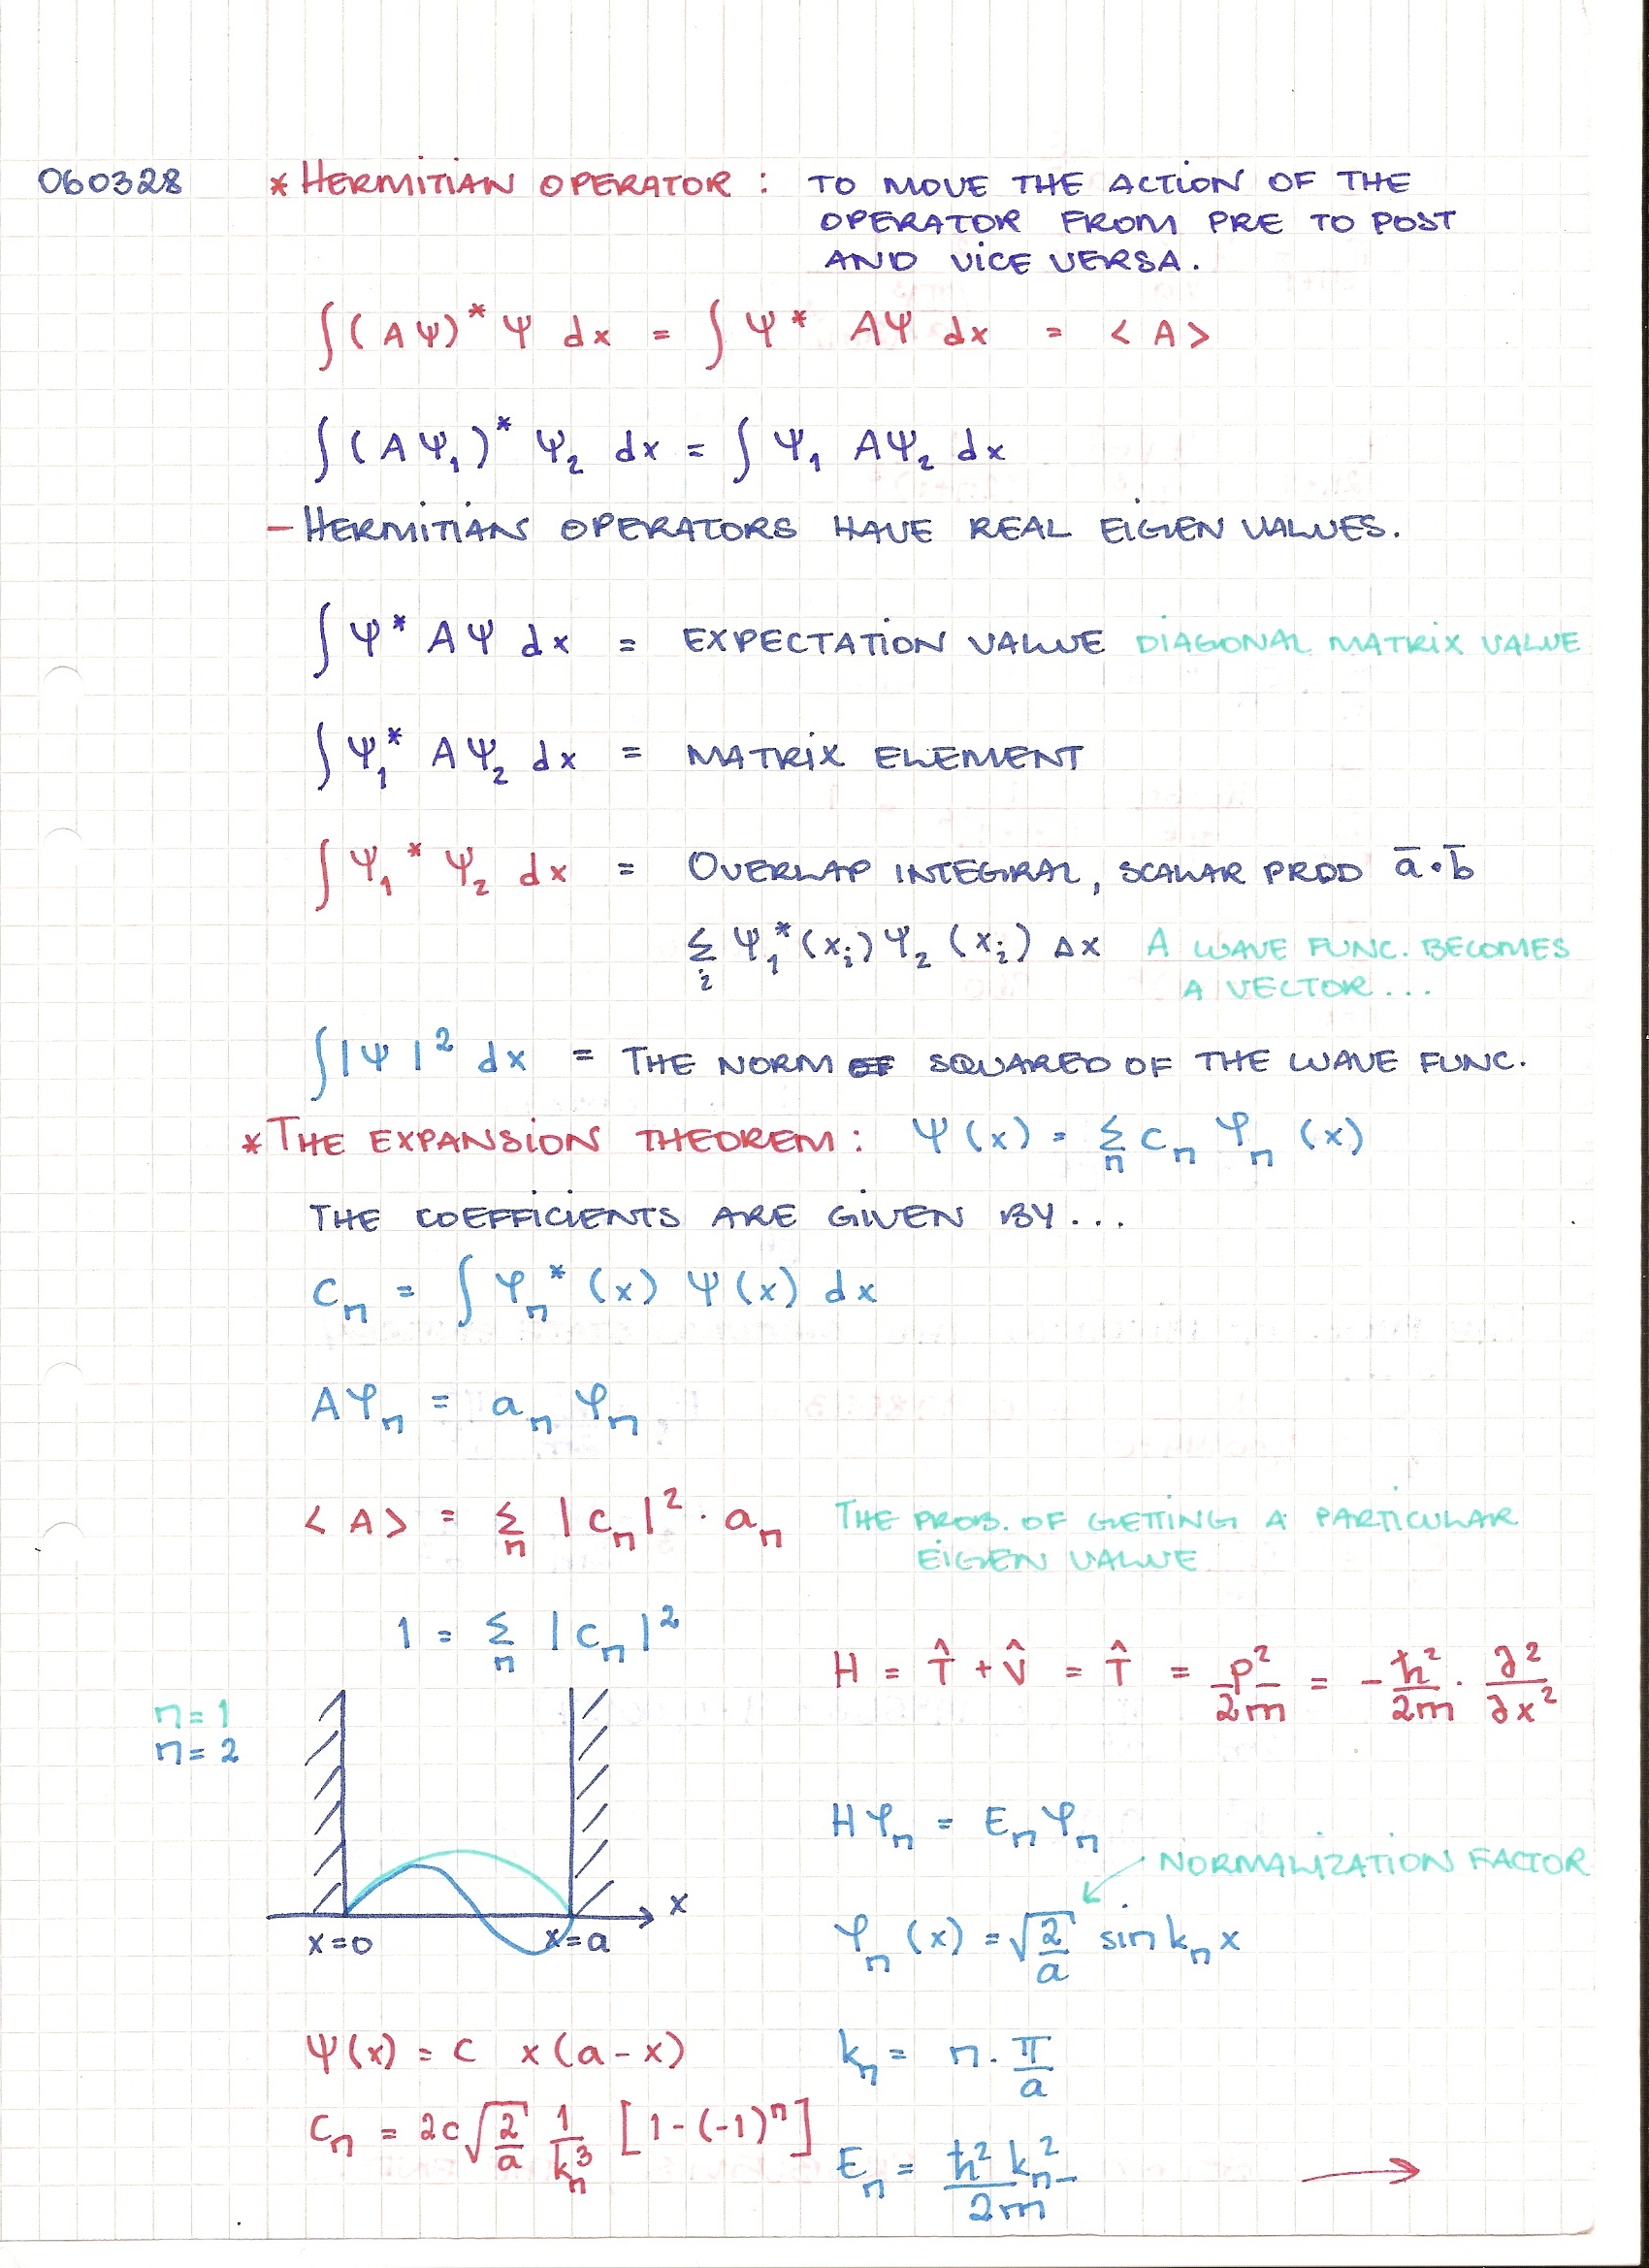 060328 * HERMITIAN OPERATOR : TO MOVE THE ACTION OF THE
OPERATOR FROM PRE TO POST
AND VICE VERSA.
∫(AΨ)* Ψ dx = ∫Ψ* AΨ dx = <A>
∫(AΨ₁)* Ψ₂ dx = ∫Ψ₁ AΨ₂ dx
– HERMITIANS OPERATORS HAVE REAL EIGEN VALUES.
∫Ψ* AΨ dx = EXPECTATION VALUE DIAGONAL MATRIX VALUE
∫Ψ₁* AΨ₂ dx = MATRIX ELEMENT
∫Ψ₁* Ψ₂ dx = OVERLAP INTEGRAL, SCALAR PROD ā·b̄
Σᵢ Ψ₁*(xᵢ)Ψ₂(xᵢ) Δx A WAVE FUNC. BECOMES
A VECTOR...
∫|Ψ|² dx = THE NORM SQUARED OF THE WAVE FUNC.
* THE EXPANSION THEOREM : Ψ(x) = Σₙ cₙ φₙ (x)
THE COEFFICIENTS ARE GIVEN BY...
cₙ = ∫φₙ*(x) Ψ(x) dx
Aφₙ = aₙ φₙ
<A> = Σₙ |cₙ|² · aₙ THE PROB. OF GETTING A PARTICULAR
EIGEN VALUE
1 = Σₙ |cₙ|²
H = T̂ + V̂ = T̂ = p²/2m = -ħ²/2m · ∂²/∂x²
n=1
n=2
Hφₙ = Eₙφₙ
NORMALIZATION FACTOR
x
φₙ(x) = √(2/a) sin kₙx
x=0 x=a
Ψ(x) = c x(a-x) kₙ = n · π/a
cₙ = 2c√(2/a) 1/kₙ³ [1-(-1)ⁿ] Eₙ = ħ²kₙ²/2m →